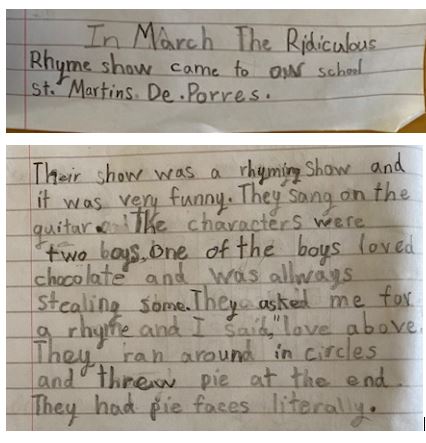 In March The Ridiculous
Rhyme show came to our school
St. Martins De.Porres.
Their show was a rhyming show and
it was very funny. They sang on the
guitar. The characters were
two boys. One of the boys loved
chocolate and was allways
stealing some. They asked me for
a rhyme and I said, "love above.
They ran around in circles
and threw pie at the end.
They had pie faces literally.